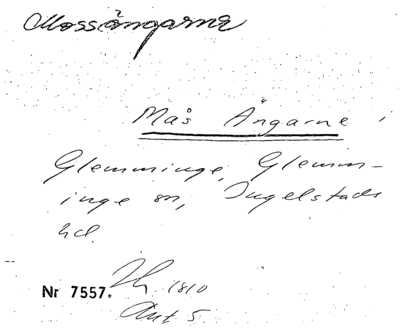 Mossängarne
Mås Ängarne
Glemminge, Glemm-
inge sn, Ingelstads
hd.
Nr 7557. 1810
Akt 5